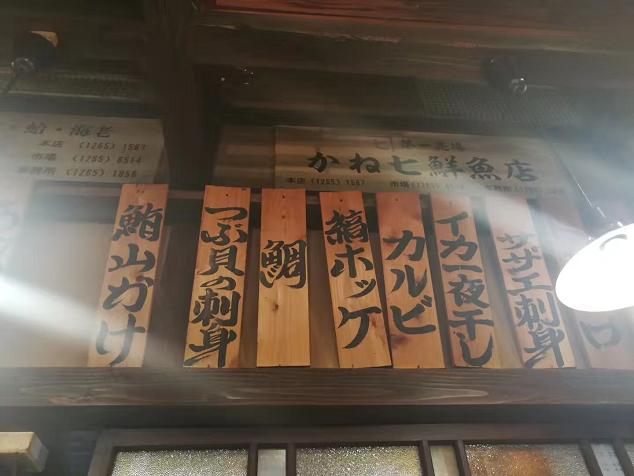 蛤・海老
本店 (1265) 1567
市場 (1265) 6514
事務所 (1265) 1856
第一売場
かね七鮮魚店
本店 (1265) 1567
市場
鮪山かけ
つぶ貝の刺身
鯛
縞ホッケ
カルビ
イカ一夜干し
サザエ刺身
ロ